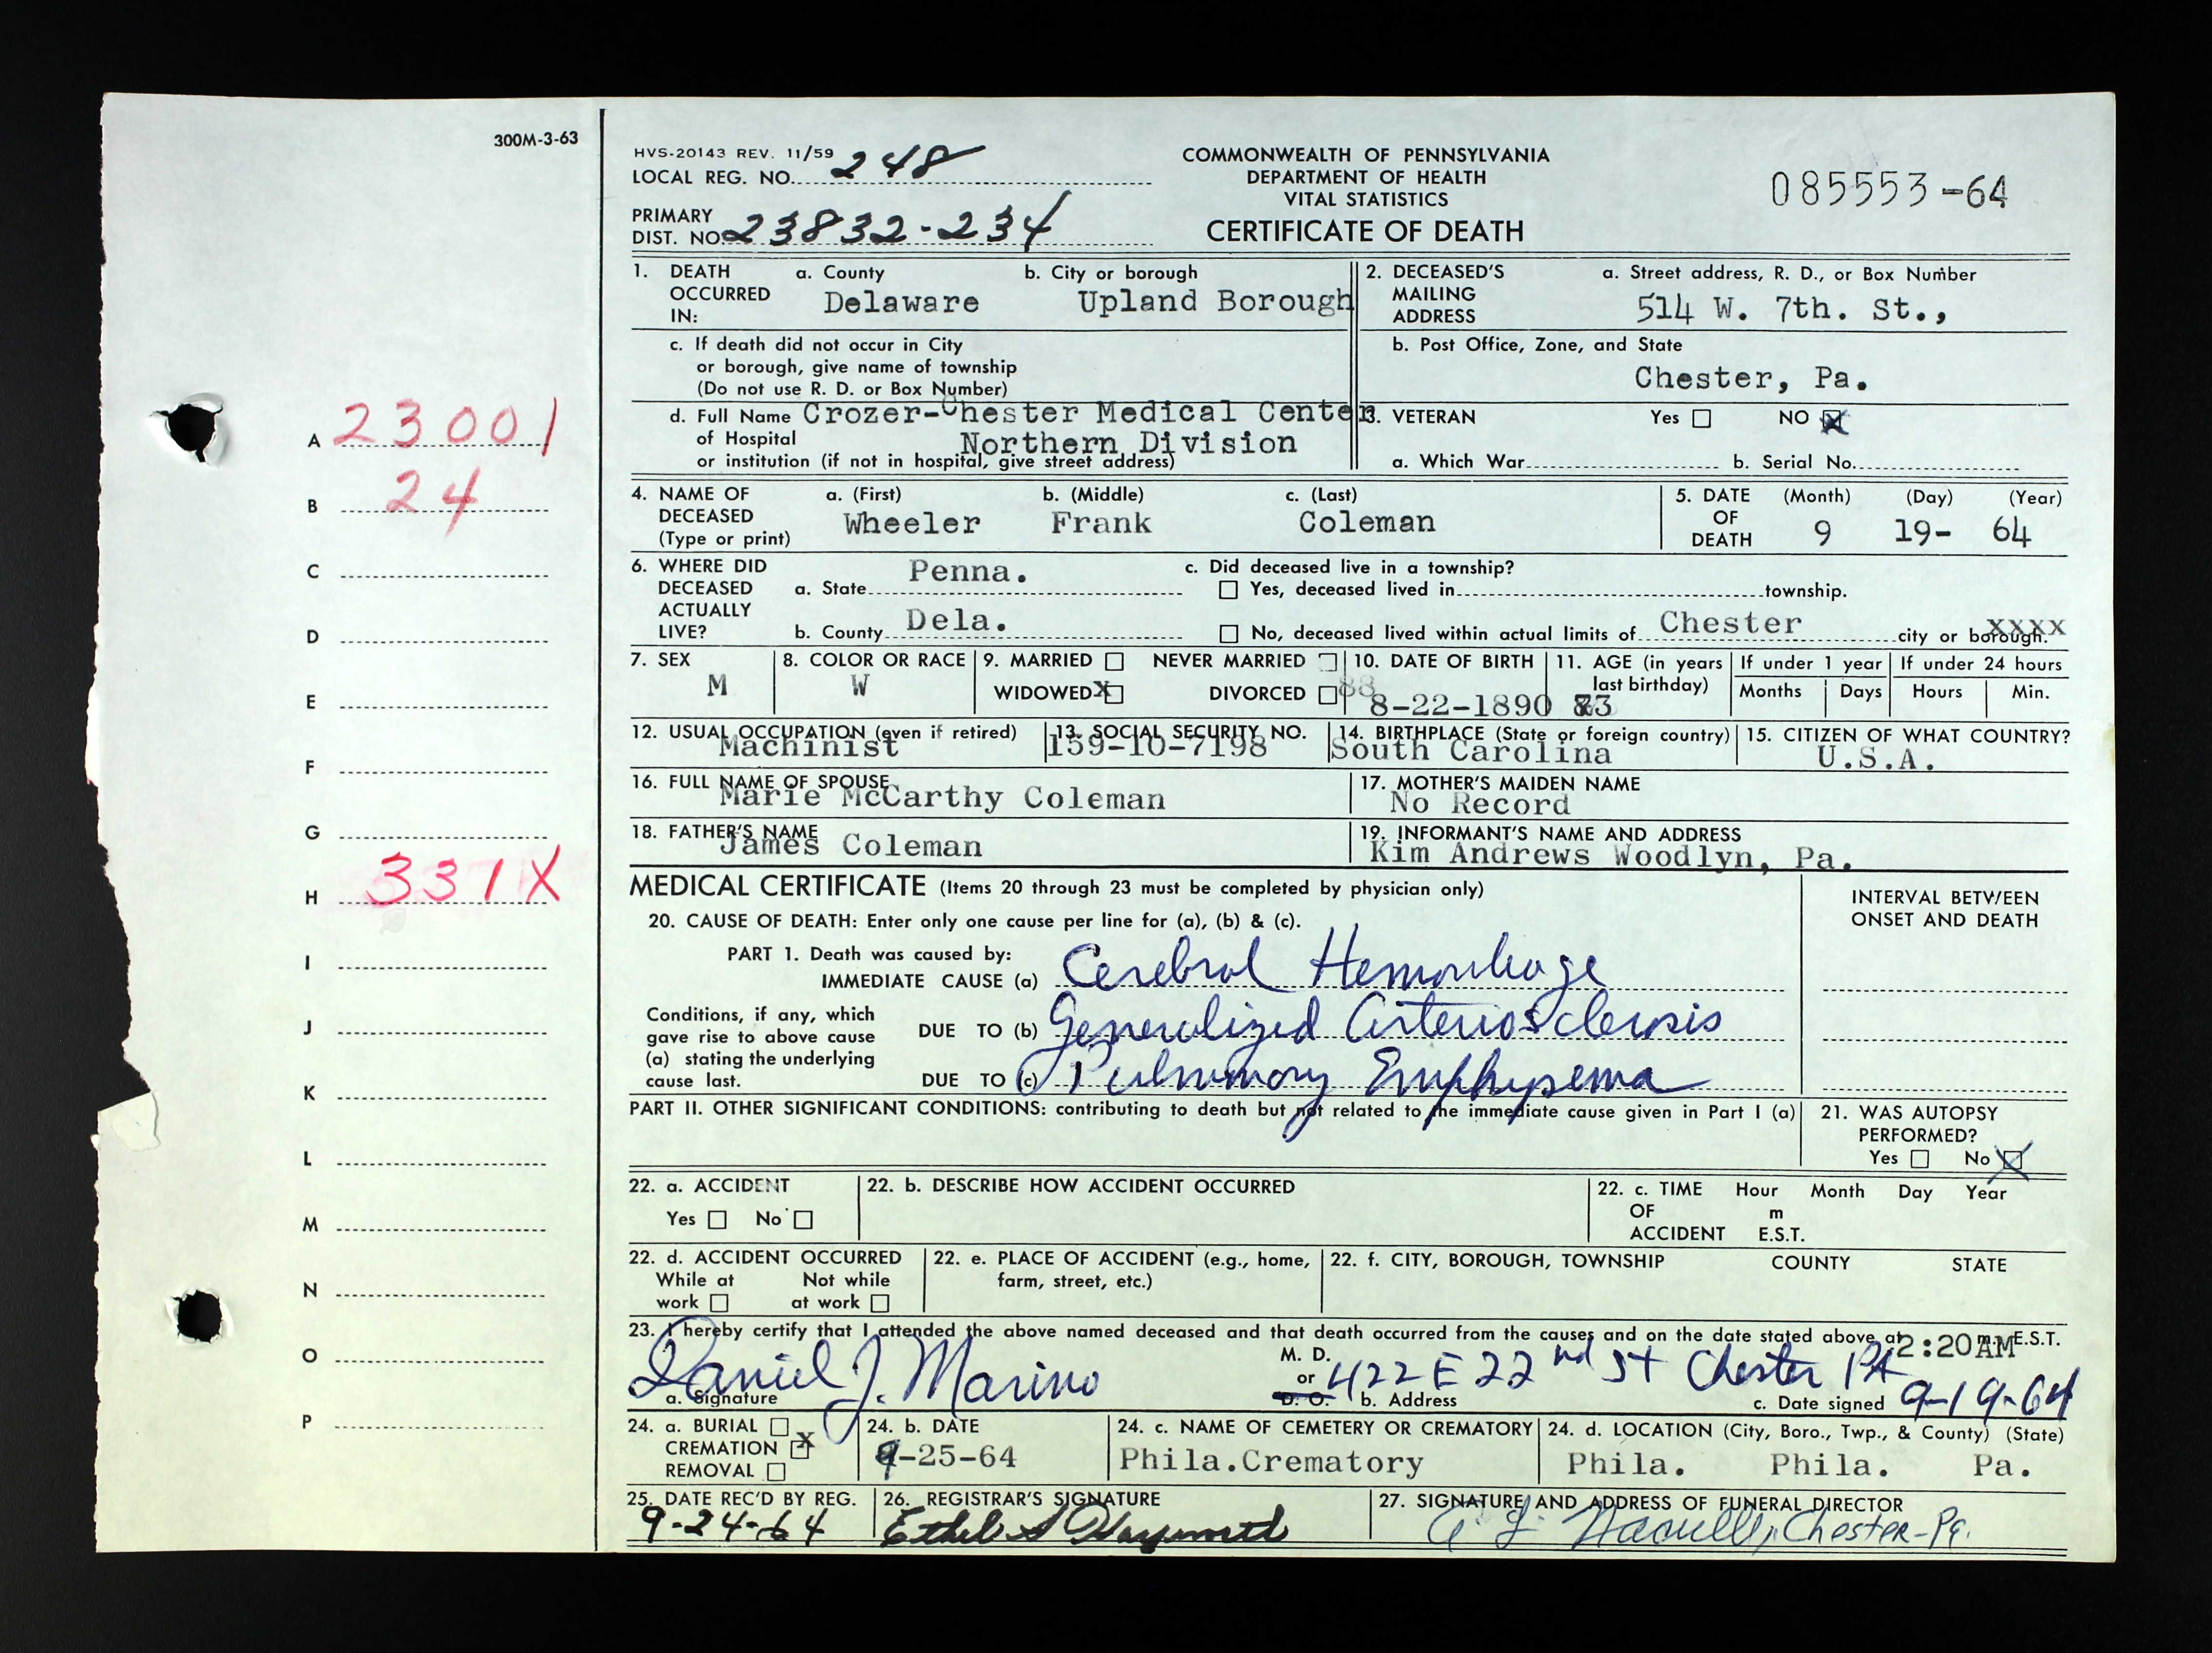 300M-3-63
HVS-20143 REV. 11/59
LOCAL REG. NO. 248
PRIMARY
DIST. NO. 23832-234
COMMONWEALTH OF PENNSYLVANIA
DEPARTMENT OF HEALTH
VITAL STATISTICS
CERTIFICATE OF DEATH
085553-64
A 23001
B 24
C
D
E
F
G
H 331X
I
J
K
L
M
N
O
P
1. DEATH OCCURRED IN:
a. County
Delaware
b. City or borough
Upland Borough
c. If death did not occur in City
or borough, give name of township
(Do not use R. D. or Box Number)
d. Full Name of Hospital
or institution (if not in hospital, give street address)
Crozer-Chester Medical Center
Northern Division
2. DECEASED'S MAILING ADDRESS
a. Street address, R. D., or Box Number
514 W. 7th. St.,
b. Post Office, Zone, and State
Chester, Pa.
3. VETERAN Yes NO X
a. Which War b. Serial No.
4. NAME OF DECEASED (Type or print)
a. (First) b. (Middle) c. (Last)
Wheeler Frank Coleman
5. DATE OF DEATH (Month) (Day) (Year)
9 19- 64
6. WHERE DID DECEASED ACTUALLY LIVE?
a. State Penna.
b. County Dela.
c. Did deceased live in a township?
Yes, deceased lived in township.
No, deceased lived within actual limits of Chester city or borough. XXXX
7. SEX
M
8. COLOR OR RACE
W
9. MARRIED NEVER MARRIED
WIDOWED X DIVORCED
10. DATE OF BIRTH
88
8-22-1890
11. AGE (in years last birthday)
73
If under 1 year
Months Days
If under 24 hours
Hours Min.
12. USUAL OCCUPATION (even if retired)
Machinist
13. SOCIAL SECURITY NO.
159-10-7198
14. BIRTHPLACE (State or foreign country)
South Carolina
15. CITIZEN OF WHAT COUNTRY?
U.S.A.
16. FULL NAME OF SPOUSE
Marie McCarthy Coleman
17. MOTHER'S MAIDEN NAME
No Record
18. FATHER'S NAME
James Coleman
19. INFORMANT'S NAME AND ADDRESS
Kim Andrews Woodlyn, Pa.
MEDICAL CERTIFICATE (Items 20 through 23 must be completed by physician only)
INTERVAL BETWEEN
ONSET AND DEATH
20. CAUSE OF DEATH: Enter only one cause per line for (a), (b) & (c).
PART 1. Death was caused by:
IMMEDIATE CAUSE (a) Cerebral Hemorrhage
Conditions, if any, which
gave rise to above cause
(a) stating the underlying
cause last.
DUE TO (b) Generalized Arteriosclerosis
DUE TO (c) Pulmonary Emphysema
PART II. OTHER SIGNIFICANT CONDITIONS: contributing to death but not related to the immediate cause given in Part I (a)
21. WAS AUTOPSY
PERFORMED?
Yes No X
22. a. ACCIDENT
Yes No
22. b. DESCRIBE HOW ACCIDENT OCCURRED
22. c. TIME OF ACCIDENT Hour Month Day Year
m
E.S.T.
22. d. ACCIDENT OCCURRED
While at work Not while at work
22. e. PLACE OF ACCIDENT (e.g., home,
farm, street, etc.)
22. f. CITY, BOROUGH, TOWNSHIP COUNTY STATE
23. I hereby certify that I attended the above named deceased and that death occurred from the causes and on the date stated above at 2:20 AM m. E.S.T.
Daniel J. Marino
a. Signature
M. D.
or
D. O.
422 E 22nd St Chester PA
b. Address
c. Date signed 9-19-64
24. a. BURIAL
CREMATION X
REMOVAL
24. b. DATE
9-25-64
24. c. NAME OF CEMETERY OR CREMATORY
Phila.Crematory
24. d. LOCATION (City, Boro., Twp., & County) (State)
Phila. Phila. Pa.
25. DATE REC'D BY REG.
9-24-64
26. REGISTRAR'S SIGNATURE
Ethel
27. SIGNATURE AND ADDRESS OF FUNERAL DIRECTOR
Chester-Pa.